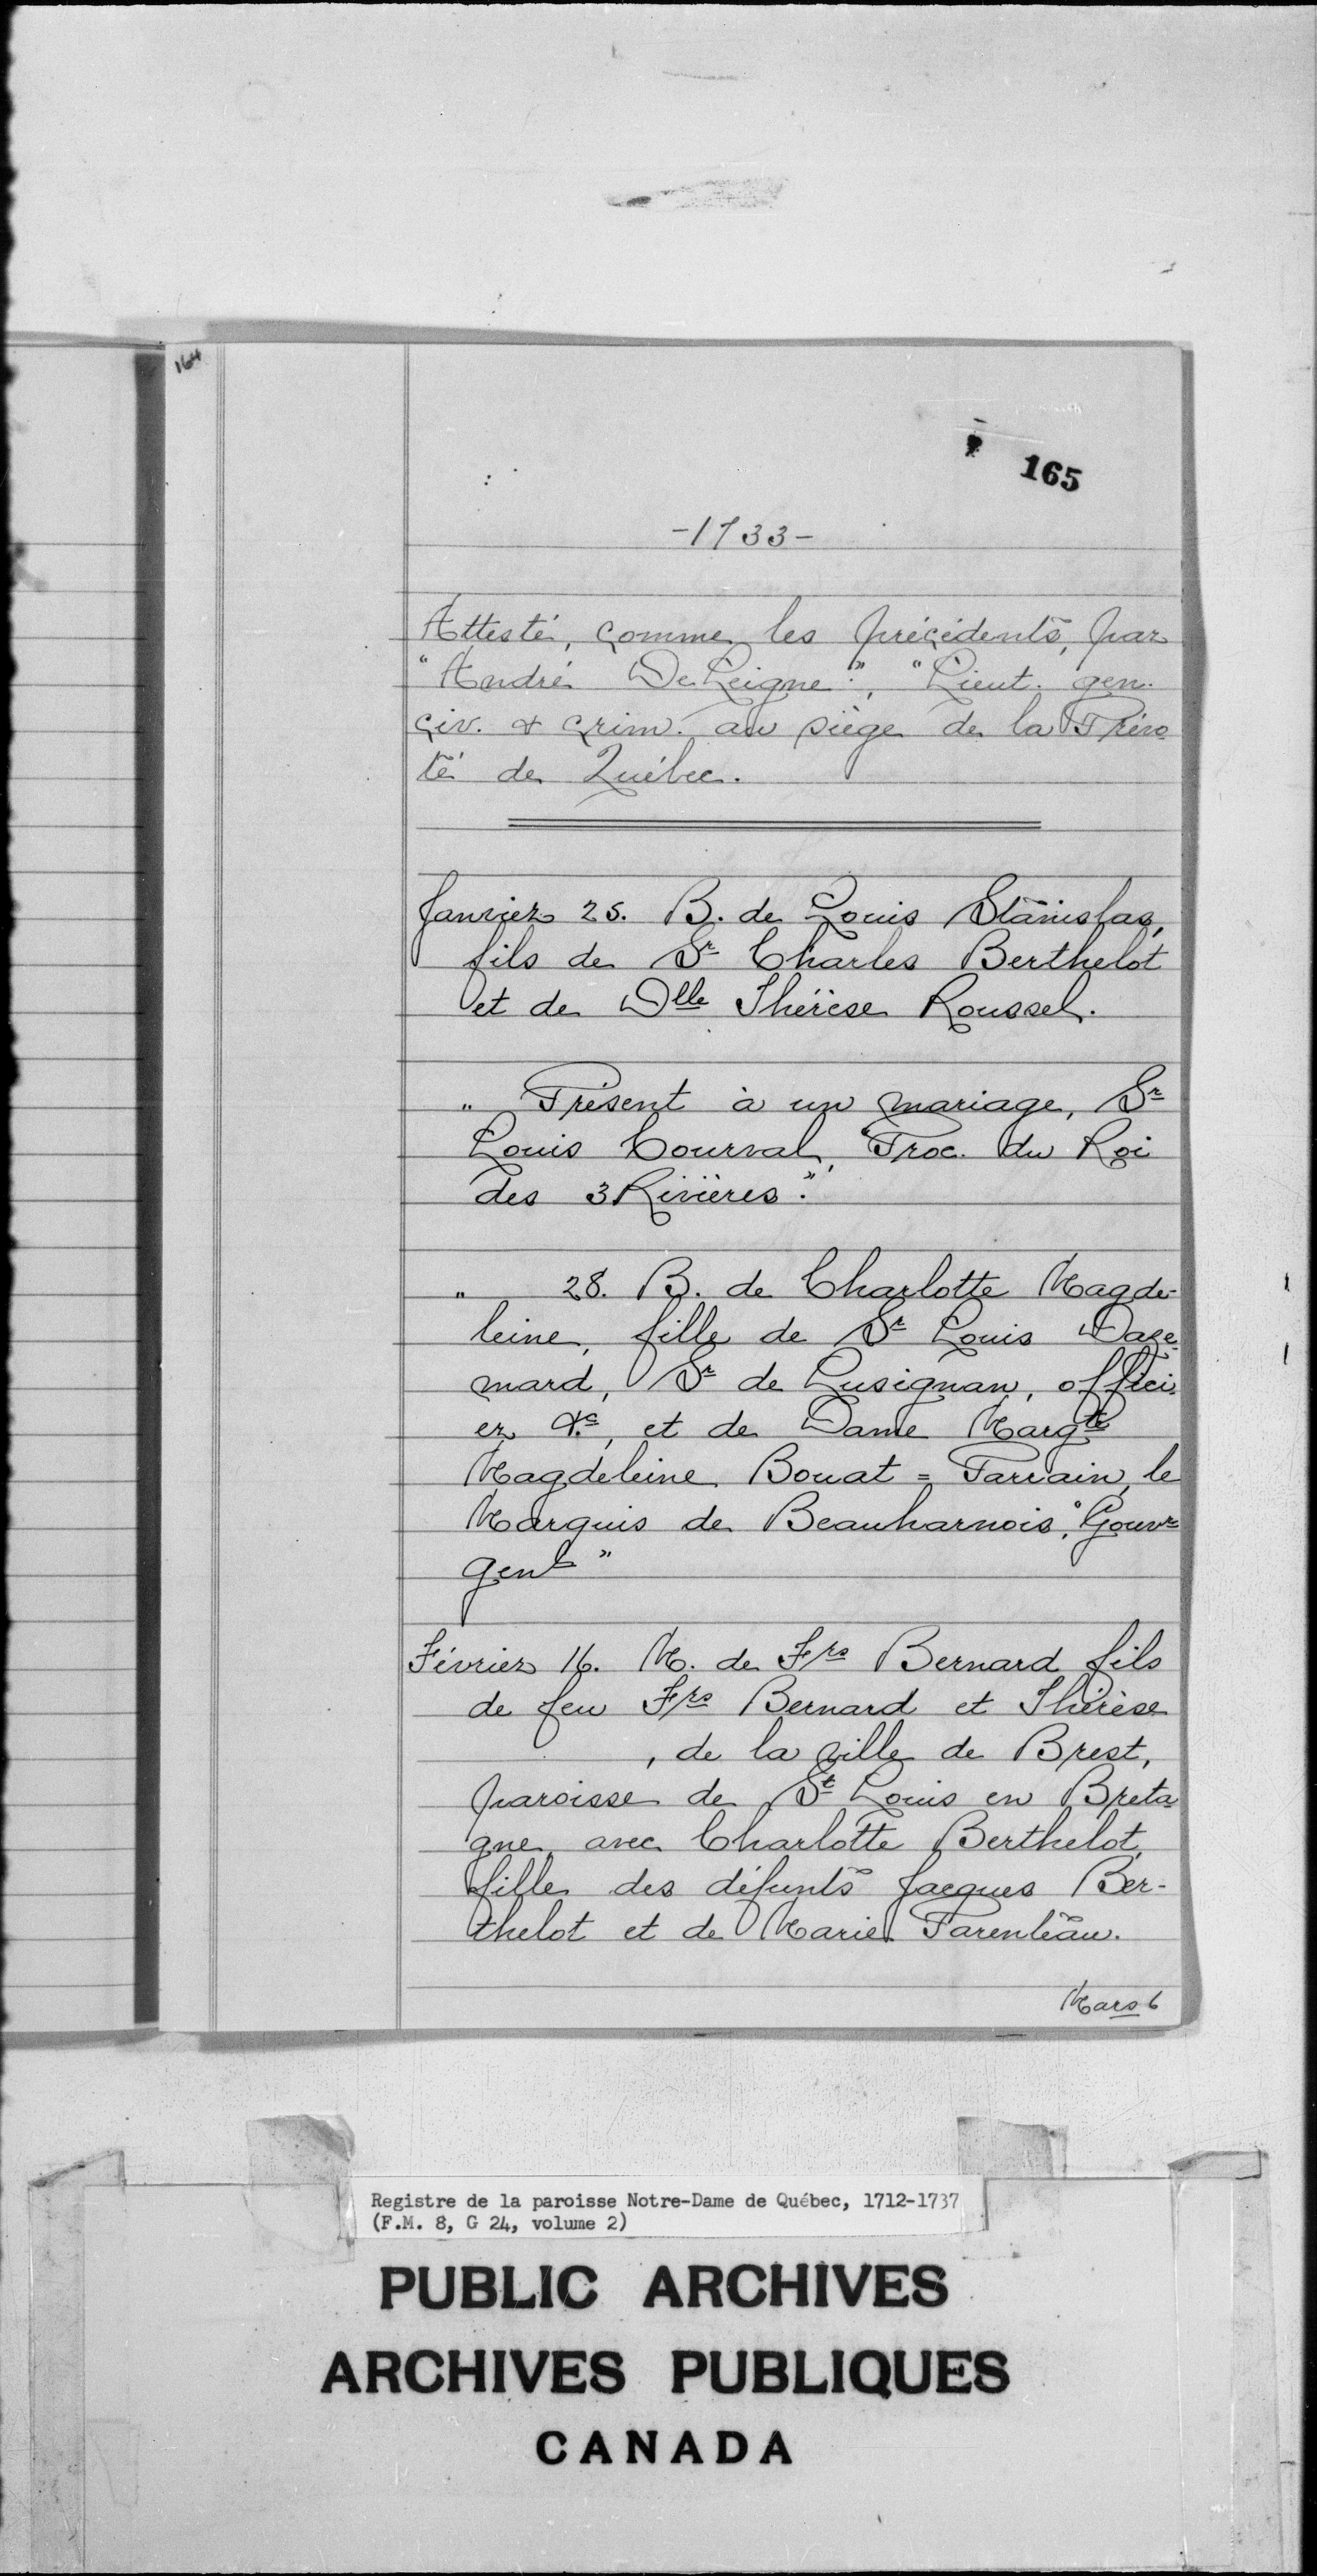 164
165
-1733-
Attesté, comme les précédents, par
"André De Leigne", "Lieut. gen.
civ. & crim. au siège de la Prévo
té de Québec.
Janvier 25. B. de Louis Stanislas,
fils de Sr Charles Berthelot
et de Dlle Thérèse Roussel.
" Présent à un mariage, Sr
Louis Courval, "Proc. du Roi
des 3 Rivières".
" 28. B. de Charlotte Magde-
leine, fille de Sr Louis Daze-
mard, Sr de Lusignan, offici-
er &c, et de Dame Margte
Magdeleine Bouat = Parrain, le
Marquis de Beauharnois, "Gouvr
genl"
Février 16. M. de Frs Bernard fils
de feu Frs Bernard et Thérèse
, de la ville de Brest,
paroisse de St Louis en Breta-
gne, avec Charlotte Berthelot,
fille des défunts Jacques Ber-
thelot et de Marie Parenteau.
Mars 6
Registre de la paroisse Notre-Dame de Québec, 1712-1737
(F.M. 8, G 24, volume 2)
PUBLIC ARCHIVES
ARCHIVES PUBLIQUES
CANADA